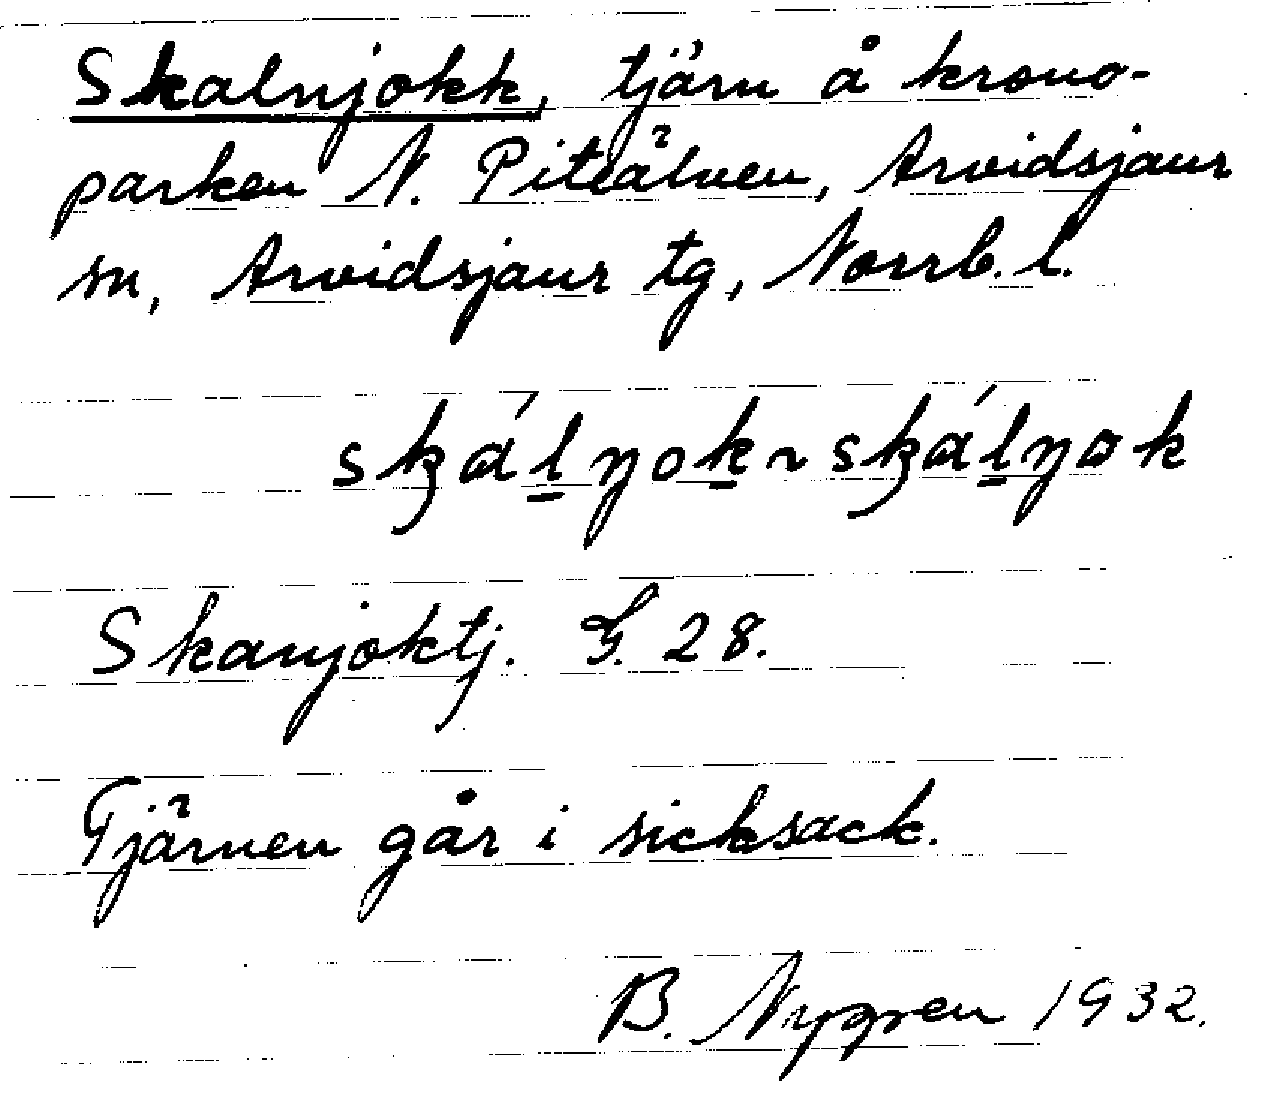 Skalnjokk, tjärn å krono-
parken N. Piteälven, Arvidsjaur
sn, Arvidsjaur tg, Norrb. l.
Skanjoktj. G. 28.
Tjärnen går i sicksack.
B. Nygren 1932.